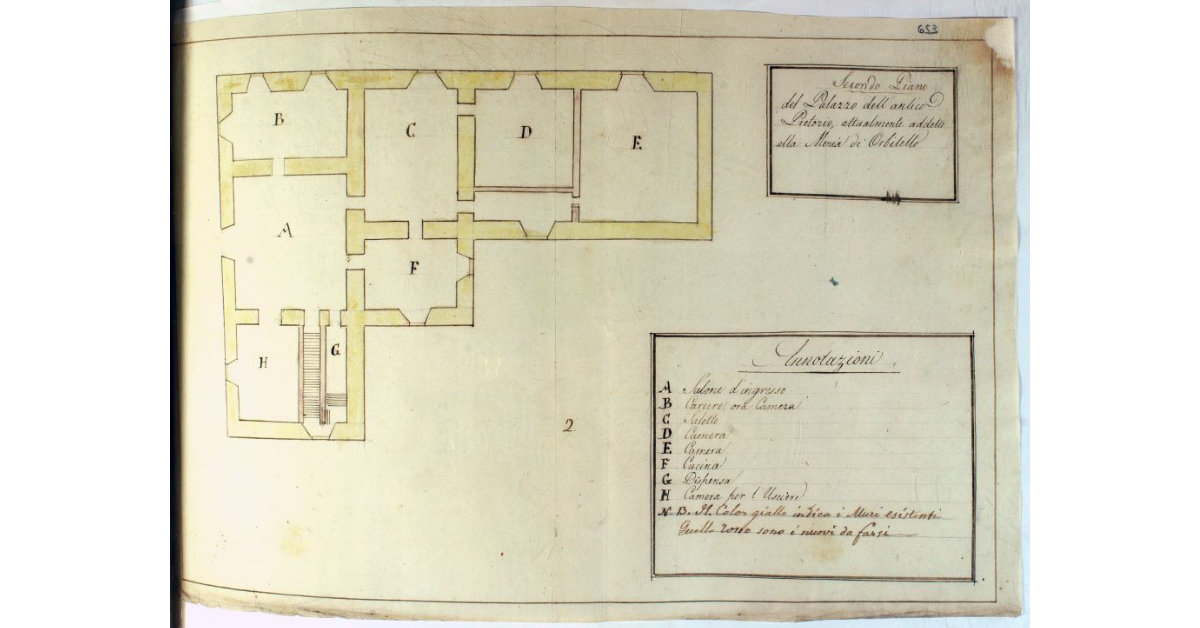 653
Secondo Piano
del Palazzo dell'antico
Pretorio, attualmente addetto
alla Meria di Orbitello
B
C
D
E
A
F
H
G
2
Annotazioni
A Salone d'ingresso
B Carcere, ora Camera
C Salotto
D Camera
E Camera
F Cucina
G Dispensa
H Camera per l'Usciere
N.B. Il Color giallo indica i Muri esistenti
Quello rosso sono i nuovi da farsi